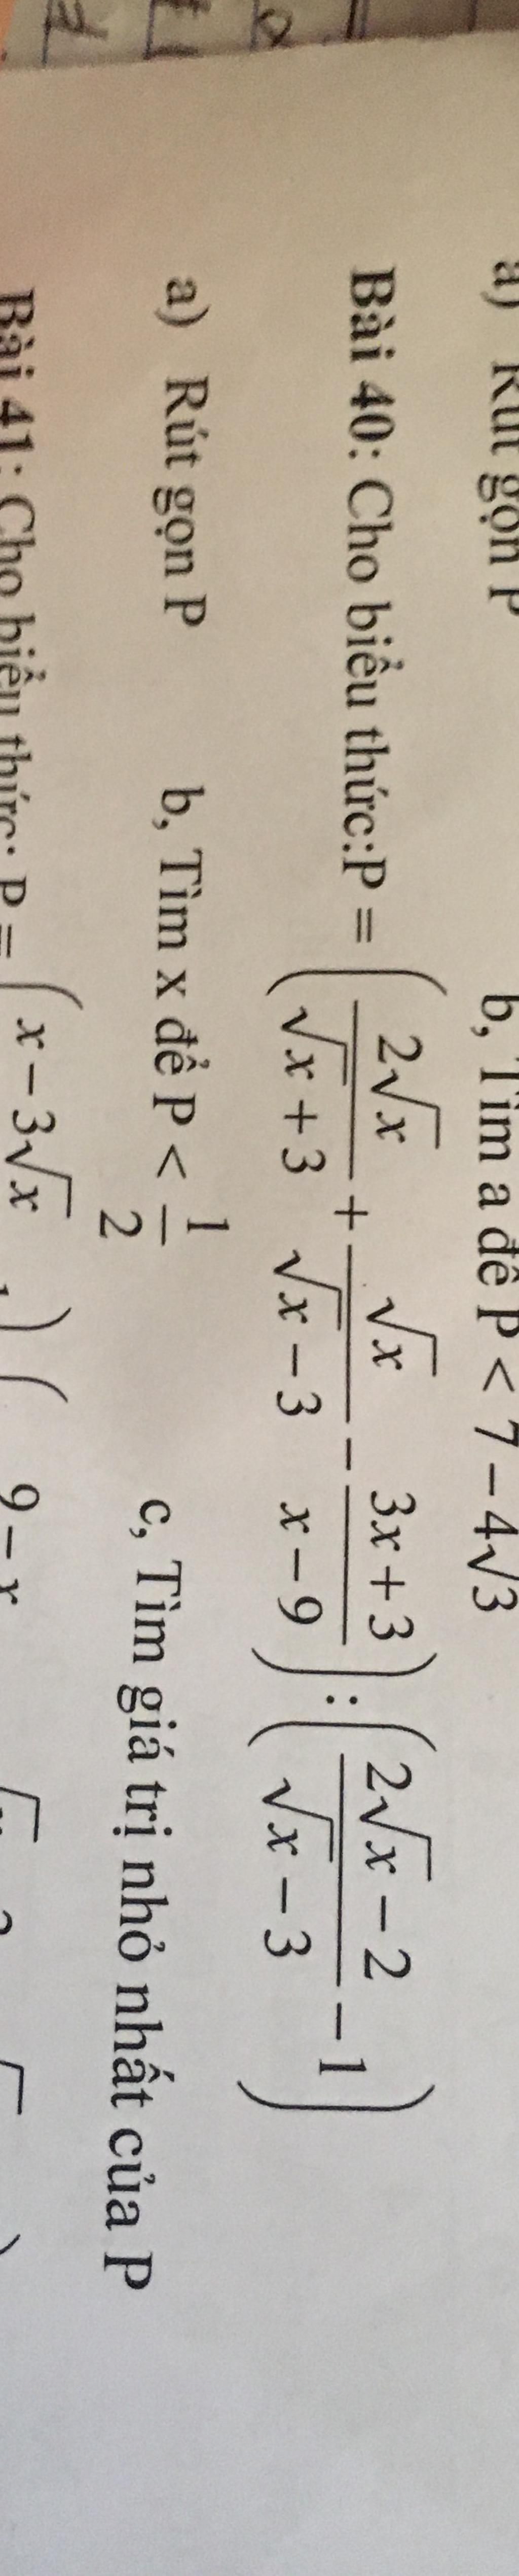 a) Rút gọn P b, Tìm a để P < 7 − 4√3
Bài 40: Cho biểu thức:P = (2√x/(√x + 3) + √x/(√x − 3) − (3x + 3)/(x − 9)) : ((2√x − 2)/(√x − 3) − 1)
a) Rút gọn P b, Tìm x để P < 1/2 c, Tìm giá trị nhỏ nhất của P
Bài 41: Cho biểu thức: P = ( x − 3√x ) ( 9 − x